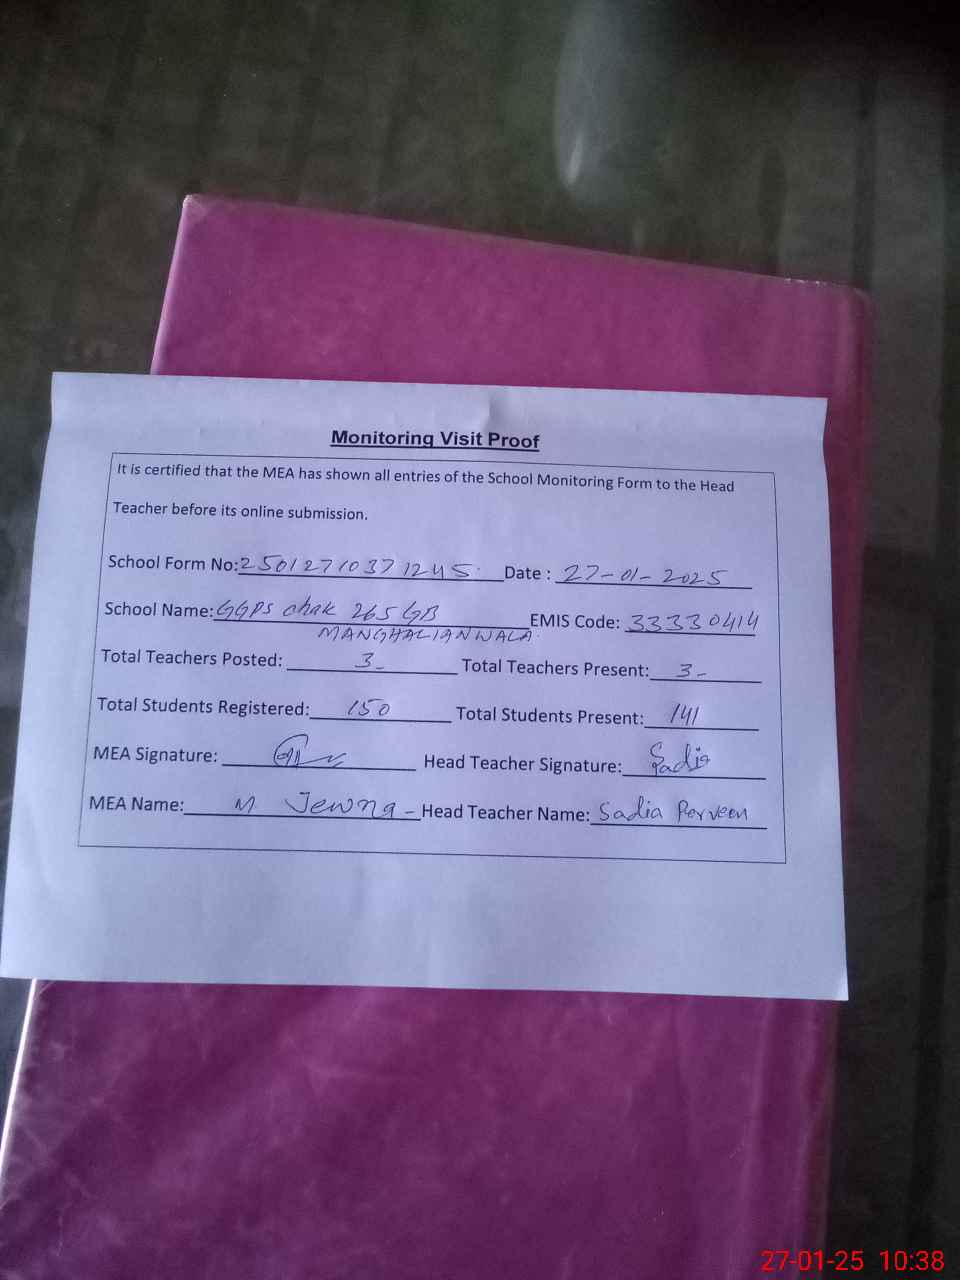 Monitoring Visit Proof
It is certified that the MEA has shown all entries of the School Monitoring Form to the Head
Teacher before its online submission.
School Form No: 25012710371245 Date : 27-01-2025
School Name: GGPS chak 265 GB EMIS Code: 33330414
MANGHALIANWALA
Total Teachers Posted: 3 Total Teachers Present: 3
Total Students Registered: 150 Total Students Present: 141
MEA Signature: Head Teacher Signature: Sadia
MEA Name: M Head Teacher Name: Sadia Perveen
27-01-25 10:38